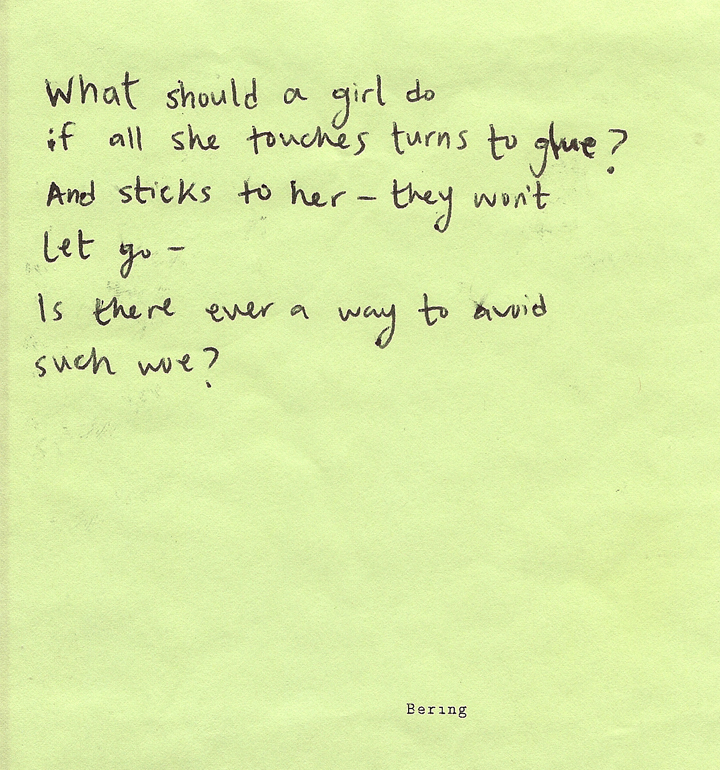 What should a girl do
if all she touches turns to glue?
And sticks to her – they won't
let go –
Is there ever a way to avoid
such woe?
Bering